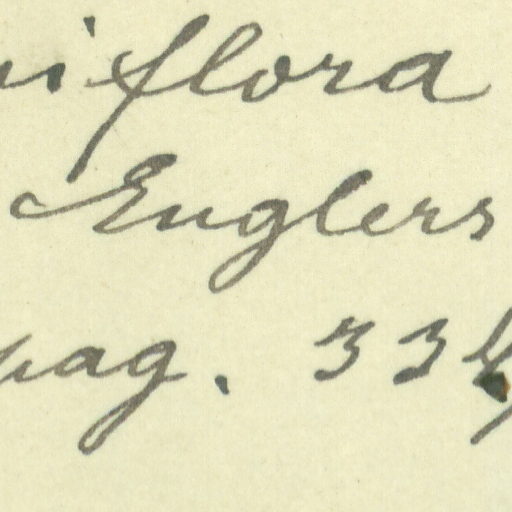 iflora
Englers
pag. 33